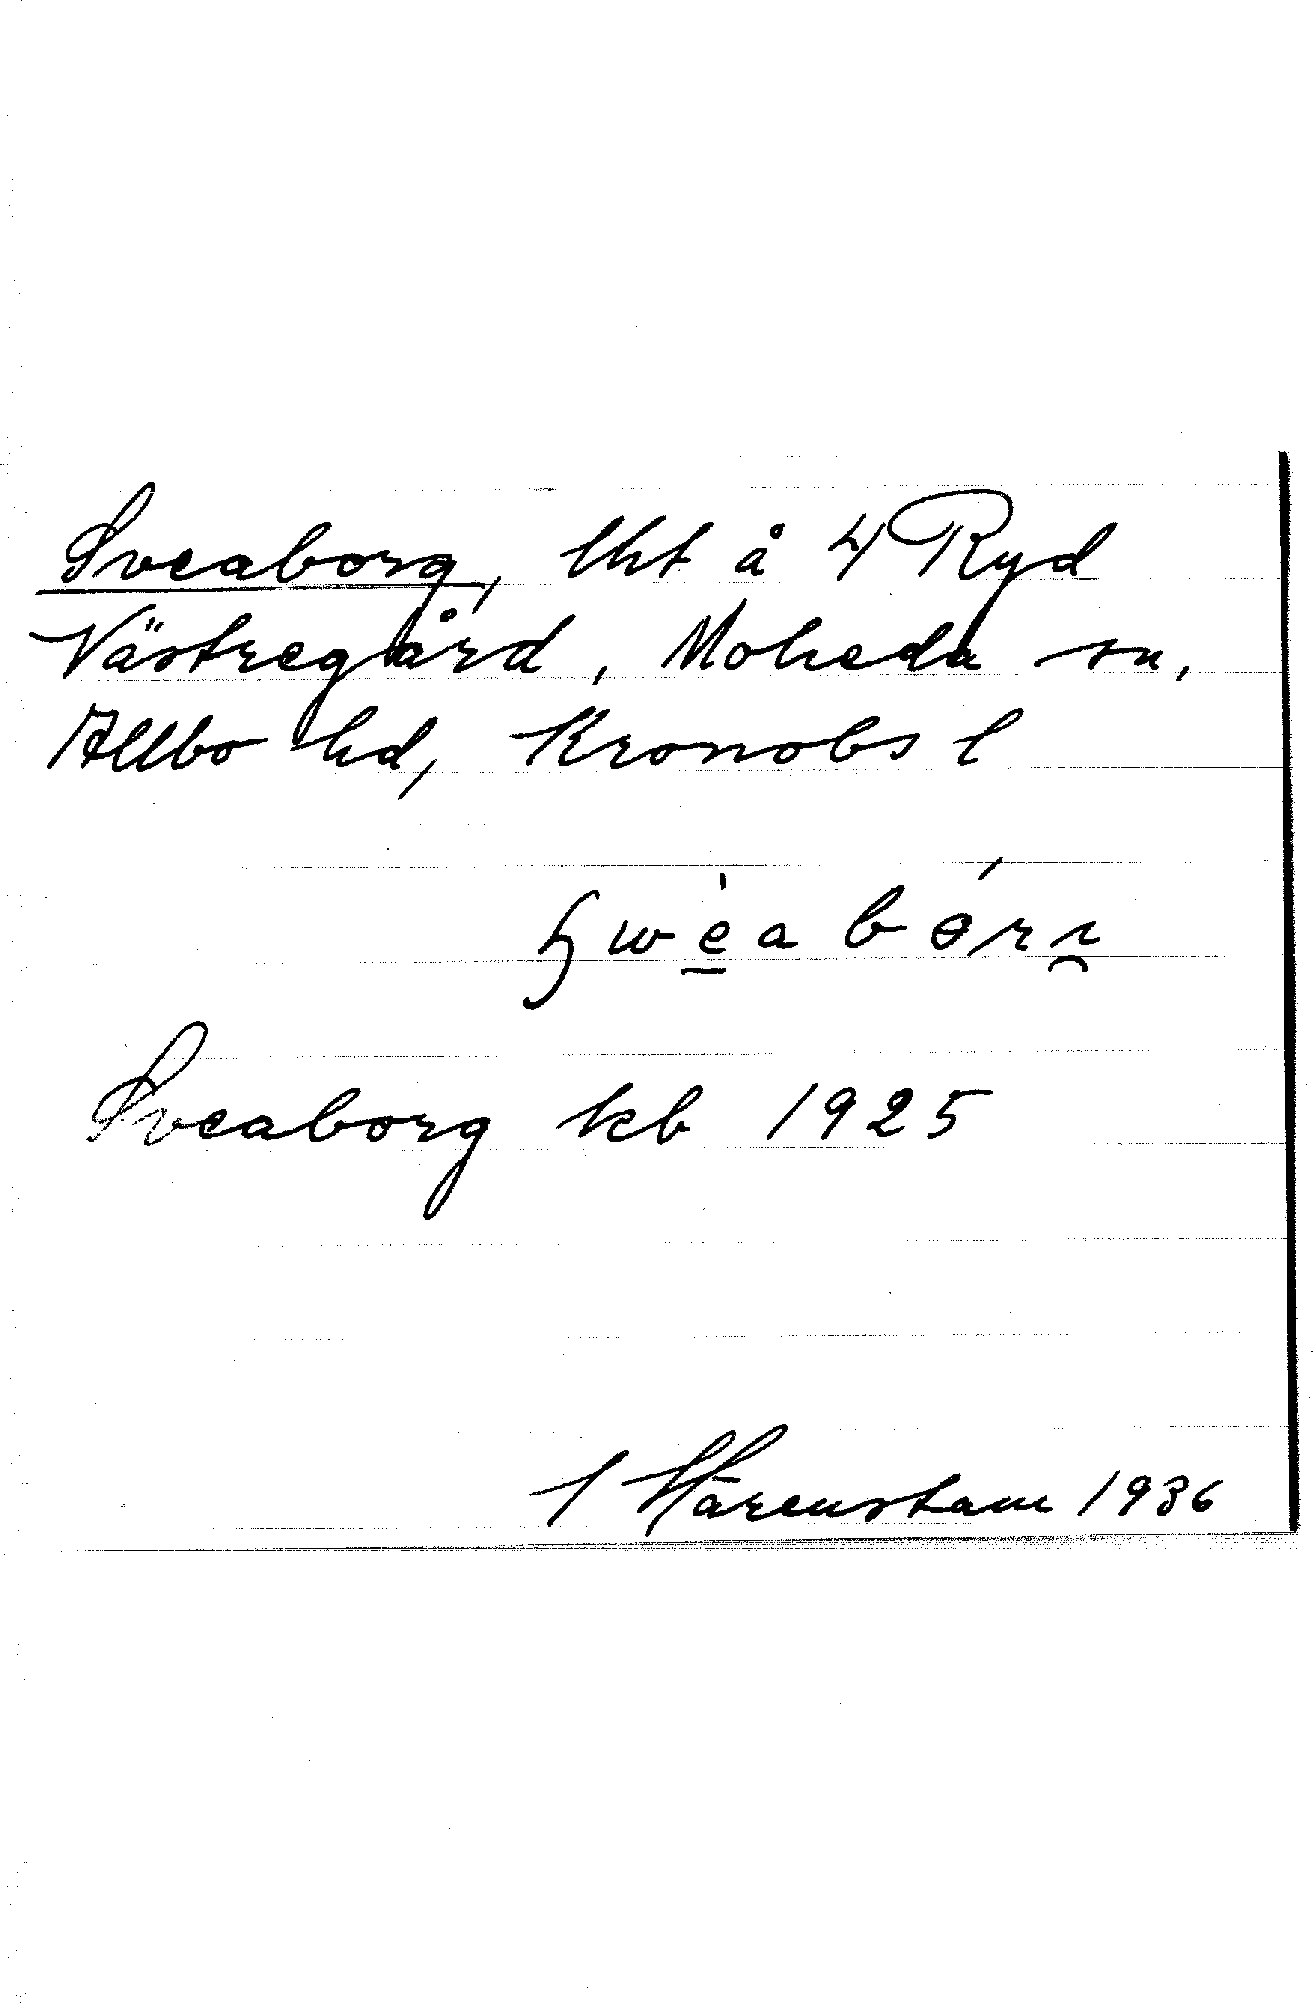 Sveaborg, lht å 4 Ryd
Västregård, Moheda sn,
Allbo hd, Kronobs l
Sveaborg kb 1925
Härenstam 1936